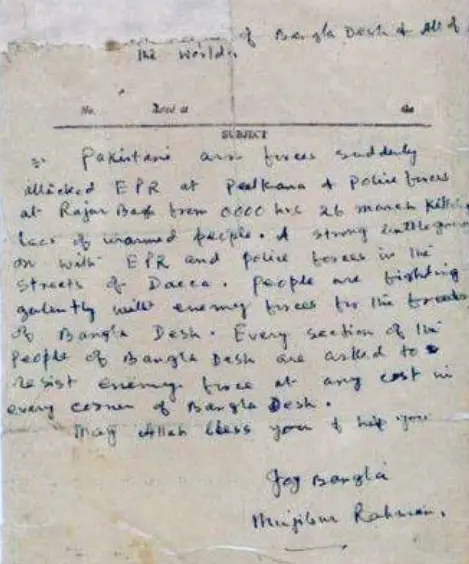 of Bangla Desh & All of
the world.
No. Dated
SUBJECT
Pakistani arm forces suddenly
attacked EPR at Peelkana & Police forces
at Rajar Bag from 0000 hrs 26 march killing
lacs of unarmed people. A strong battle going
on with EPR and police forces in the
streets of Dacca. People are fighting
galently with enemy forces for the freedom
of Bangla Desh. Every section of the
people of Bangla Desh are asked to
resist enemy force at any cost in
every corner of Bangla Desh.
May Allah bless you & help you
Joy Bangla
Mujibur Rahman.